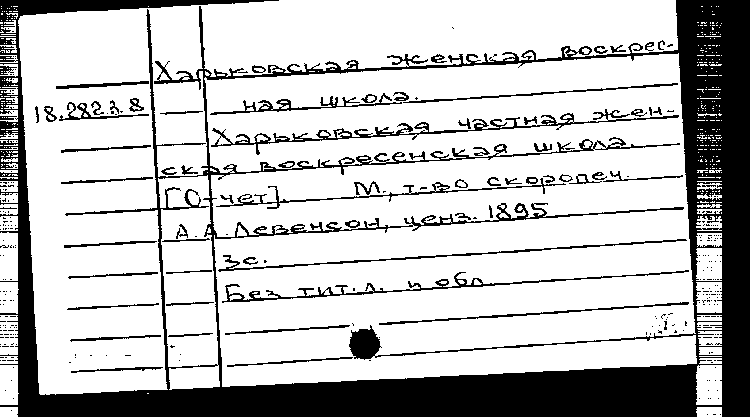 Харьковская женская воскрес-
18.282.3.8 ная школа.
Харьковская частная жен-
ская воскресенская школа.
[Отчет]. М., т-во скоропеч.
А.А. Левенсон, ценз. 1895
3с.
Без тит.л. и обл.